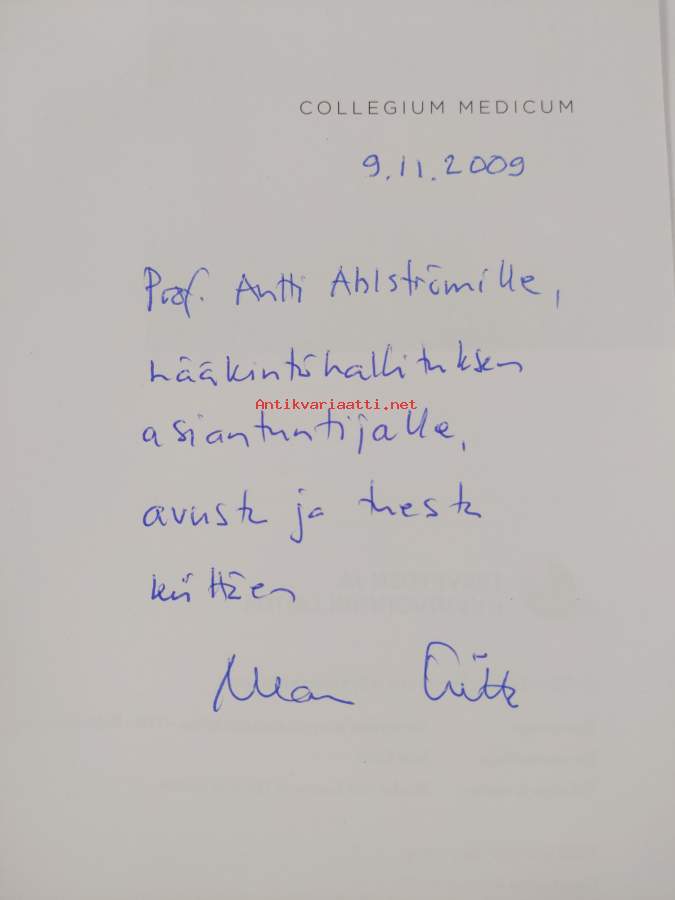 COLLEGIUM MEDICUM
9.11.2009
Prof. Antti Ahlströmille,
lääkintöhallituksen
Antikvariaatti.net
asiantuntijalle,
avusta ja tuesta
kiittäen